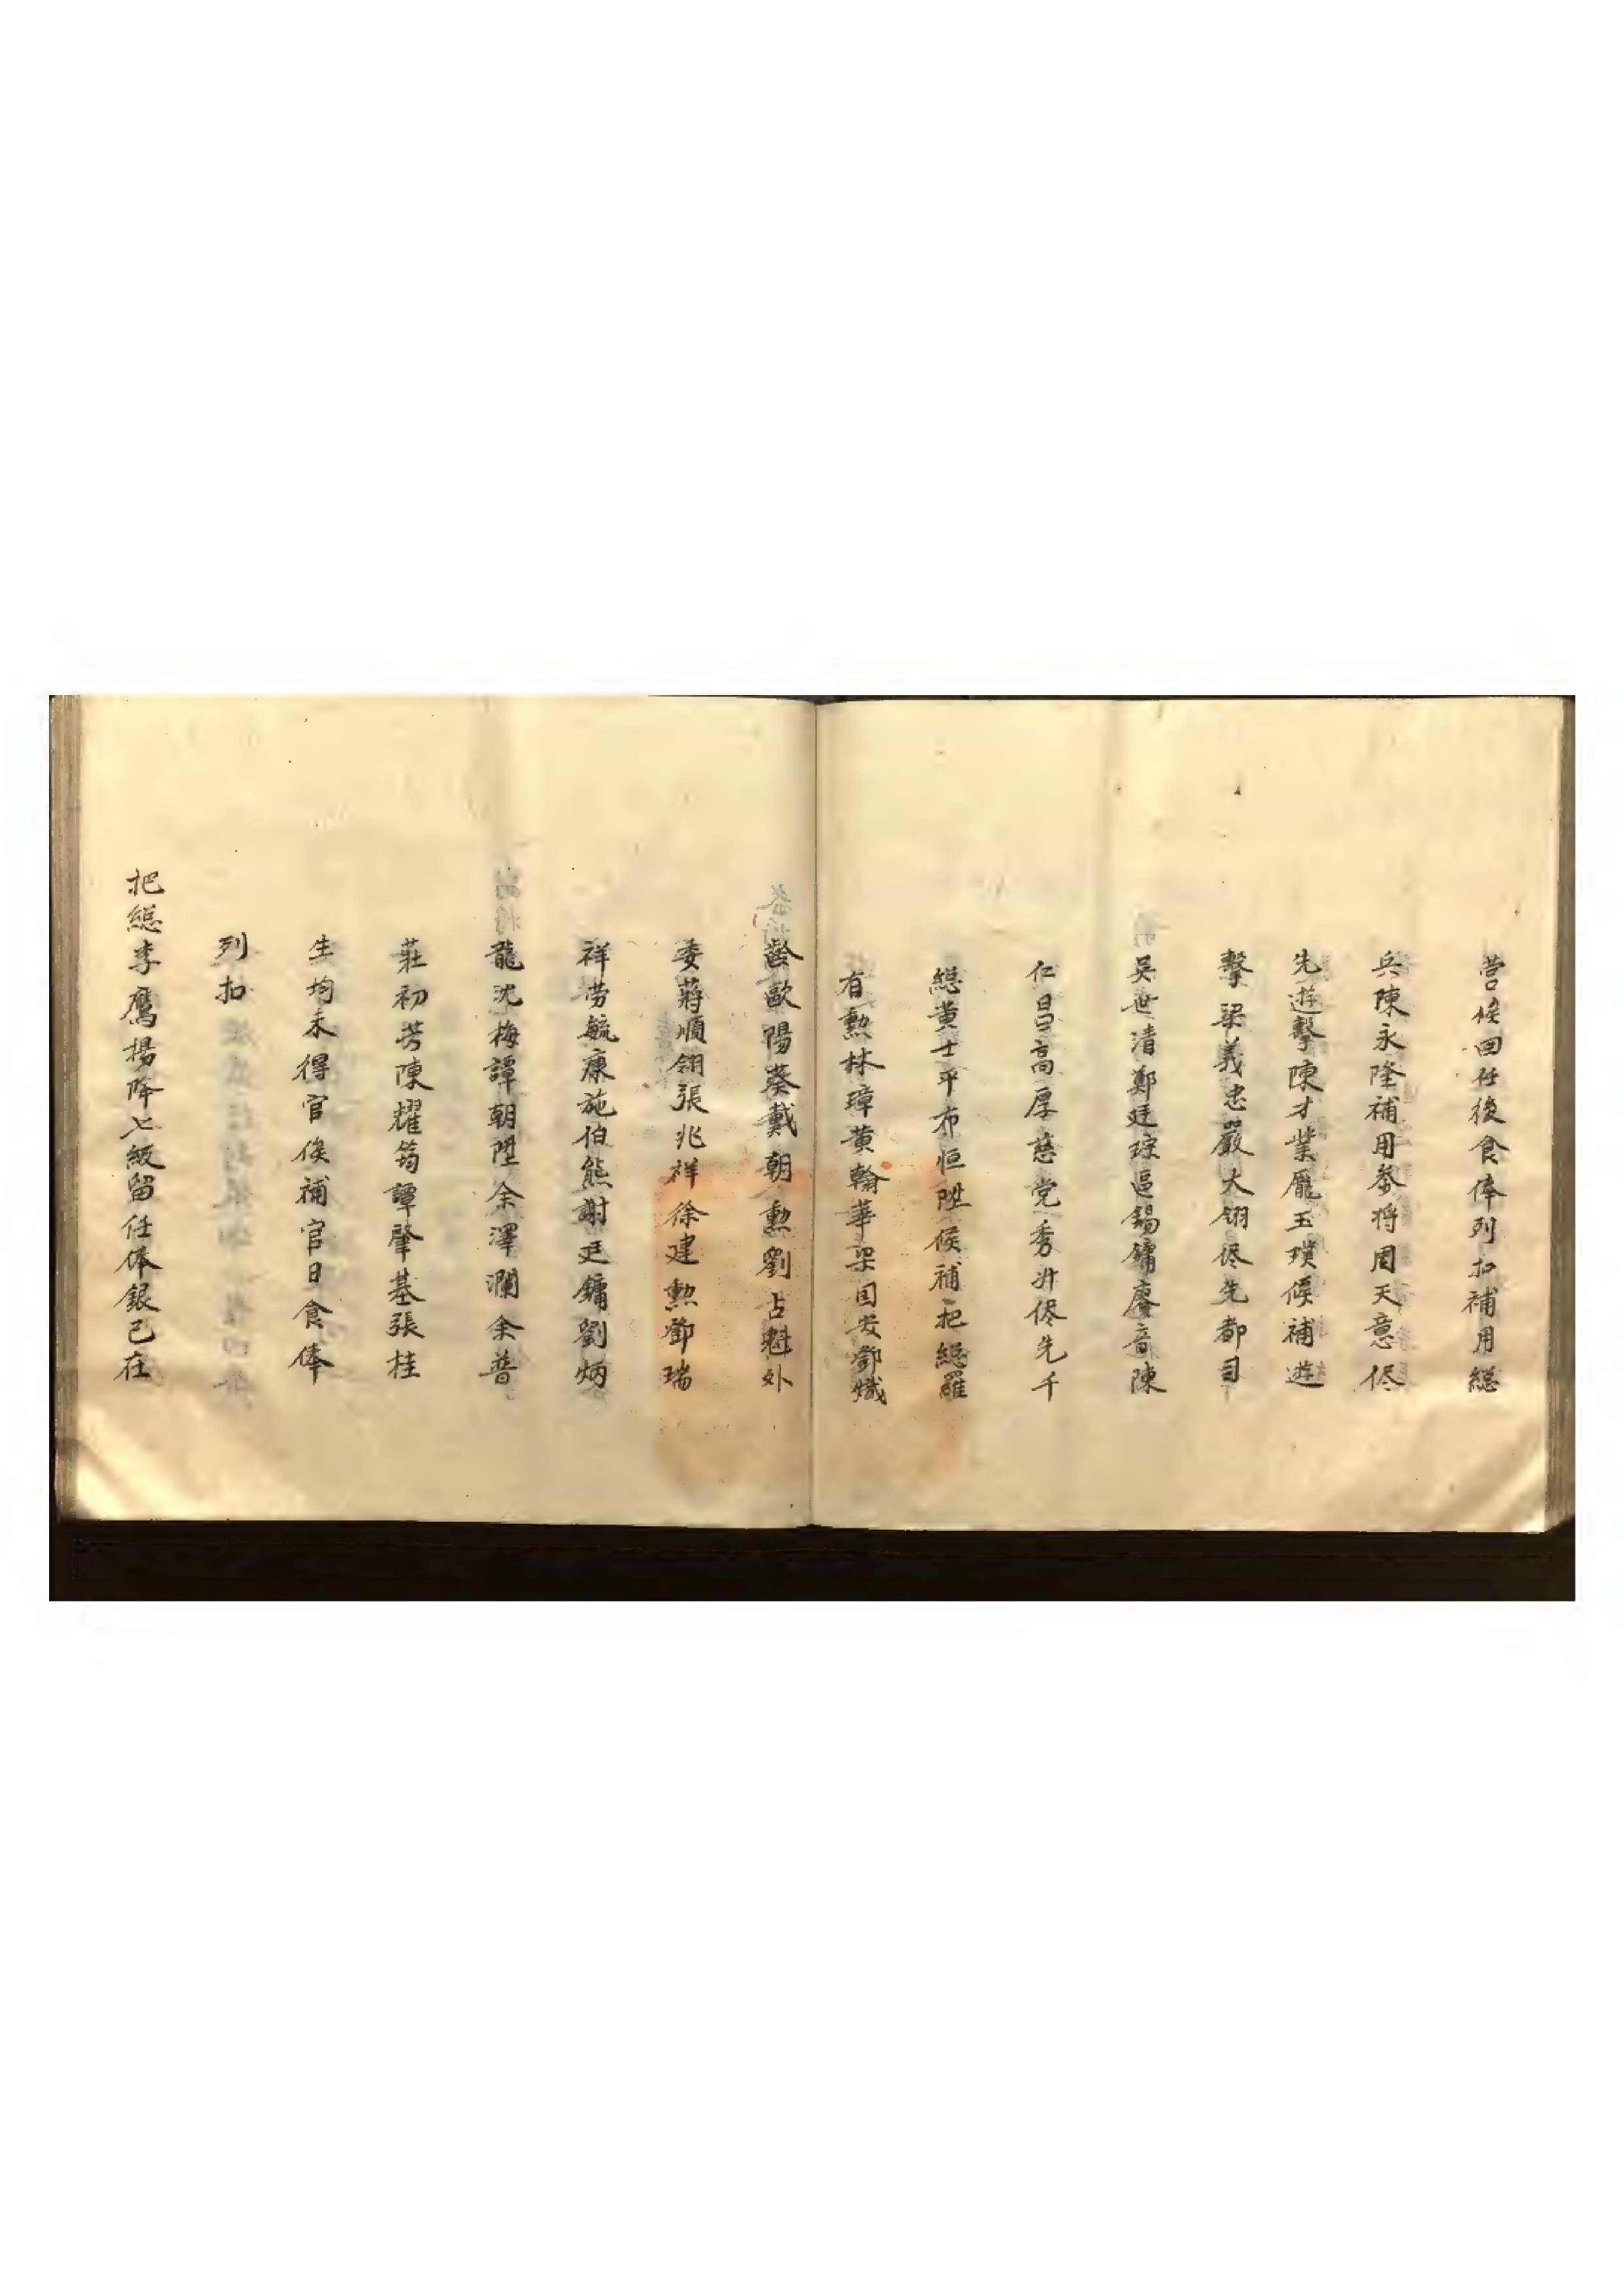 營俟回任後食俸列扣補用總
兵陳永隆補用參將周天意儘
先遊擊陳才業龐玉璞候補遊
擊梁義忠嚴大翎儘先都司
吳世清鄭廷琮區錫鏞廖音陳
仁昌高厚慈党秀升儘先千
總黃士平布恒陞候補把總羅
有勲林璋黃翰華梁国安鄧熾
齡歐陽葵戴朝勲劉占魁外
委蔣順翎張兆祥徐建勲鄧瑞
祥勞毓康施伯熊謝廷鏞劉炳
龍沈梅譚朝陞余澤瀾余普
莊初芳陳耀筠譚肇基張桂
生均未得官俟補官日食俸
列扣
把總李鷹揚降七級留任俸銀已在